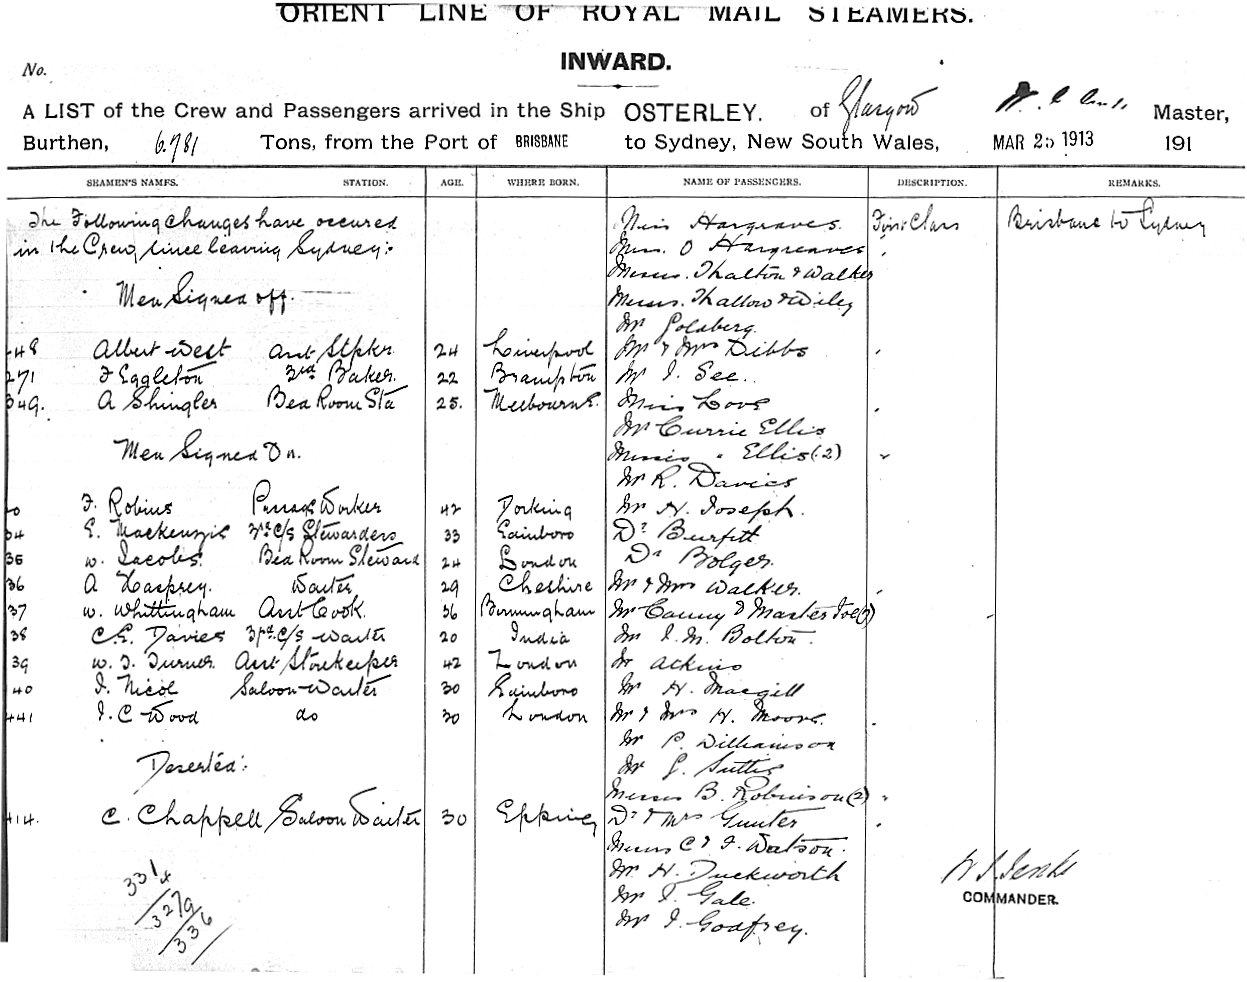 ORIENT LINE OF ROYAL MAIL STEAMERS.
INWARD.
No.
A LIST of the Crew and Passengers arrived in the Ship OSTERLEY. of Glasgow Master,
Burthen, 6.781 Tons, from the Port of BRISBANE to Sydney, New South Wales, MAR 25 1913 191
SEAMEN'S NAMES. STATION. AGE. WHERE BORN. NAME OF PASSENGERS. DESCRIPTION. REMARKS.
The Following changes have occured
in the Crew since leaving Sydney:-
Men Signed off.
48 Albert West Asst Stpker 24 Liverpool
271 F Eggleton 3rd Baker. 22 Brampton
349. A Shingler Bed Room Std 25. Melbourne.
Men Signed On.
F. Robins Passage Worker 42 Dorking
34 E. Mackenzie 3rd C/s Stewardess 33 Edinboro
35 W. Jacobs. Bed Room Steward 24 London
36 A Waiter 29 Cheshire
37 W. Whittingham Asst Cook. 36 Birmingham
38 C.E. Davies 3rd C/s Waiter 20 India
39 W. J. Turner Asst Storekeeper 42 London
40 J. Nicol Saloon Waiter 30 Edinboro
441 J. C Wood do 30 London
Deserted:
414. C. Chappell Saloon Waiter 30 Epping
3314
3279
336
Miss Hargreaves. First Class Brisbane to Sydney
Miss. O Hargreaves
Messrs. Thalton & Walker
Messrs. Thallow & Wiley
Mr Goldberg.
Mr & Mrs Dibbs
Mr J. See.
Miss Love
Mr Currie Ellis
Misses " Ellis (2)
Mr R. Davies
Mr H. Joseph.
Dr Burfitt
Dr Bolger.
Mr & Mrs Walker.
Mr Canny & Master
Mr J. M. Bolton.
Mr Atkins
Mr H. Macgill
Mr & Mrs H. Moore.
Mr P. Williamson
Mr G. Suttie
Misses B. Robinson (2)
Dr & Mrs Gunter
Messrs C & F. Watson.
Mr H. Duckworth
Mr T. Gale.
Mr J. Godfrey.
COMMANDER.